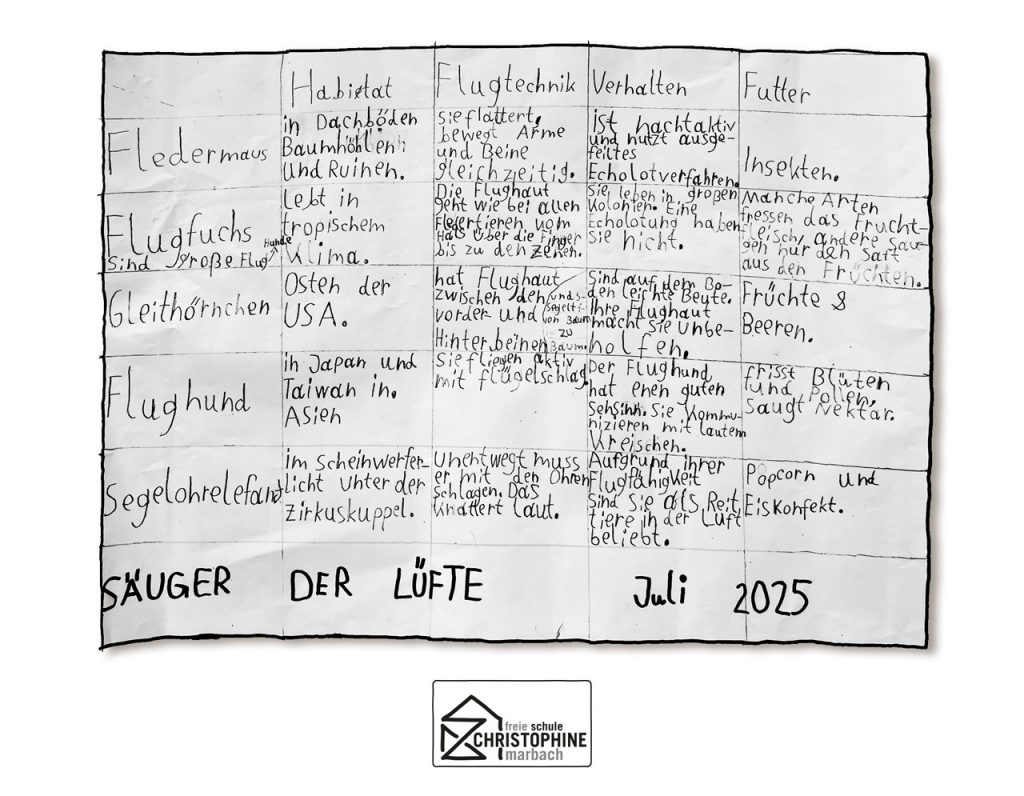 Habitat
Flugtechnik
Verhalten
Futter
Fledermaus
in Dachböden
Baumhöhlen
und Ruinen.
sie flattert,
bewegt Arme
und Beine
gleichzeitig.
ist nachtaktiv
und nutzt ausge-
feiltes
Echolotverfahren.
Insekten.
Flugfuchs
Sind große Flug
Hunde
Lebt in
tropischem
Klima.
Die Flughaut
geht wie bei allen
Fledertieren vom
Hals über die Finger
bis zu den Zehen.
Sie leben in großen
Kolonien. Eine
Echolotung haben
sie nicht.
Manche Arten
fressen das Frucht-
fleisch, andere sau-
gen nur den Saft
aus den Früchten.
Gleithörnchen
Osten der
USA.
hat Flughaut
zwischen den
vorder und
Hinterbeinen
und s-
segelt
von Baum
zu
Baum.
Sind auf dem Bo-
den leichte Beute.
Ihre Flughaut
macht sie unbe-
holfen.
Früchte &
Beeren.
Flughund
in Japan und
Taiwan in
Asien
Sie fliegen aktiv
mit flügelschlag.
Der Flughund
hat enen guten
Sehsinn. Sie Kommu-
nizieren mit lautem
Kreischen.
frisst Blüten
und Pollen,
Saugt Nektar.
Segelohrelefant
im Scheinwerfer-
licht unter der
Zirkuskuppel.
Unentwegt muss
er mit den Ohren
schlagen. Das
knattert laut.
Aufgrund ihrer
Flugfähigkeit
sind sie als Reit
tiere in der Luft
beliebt.
Popcorn und
Eiskonfekt.
SÄUGER DER LÜFTE Juli 2025
freie schule
CHRISTOPHINE
marbach